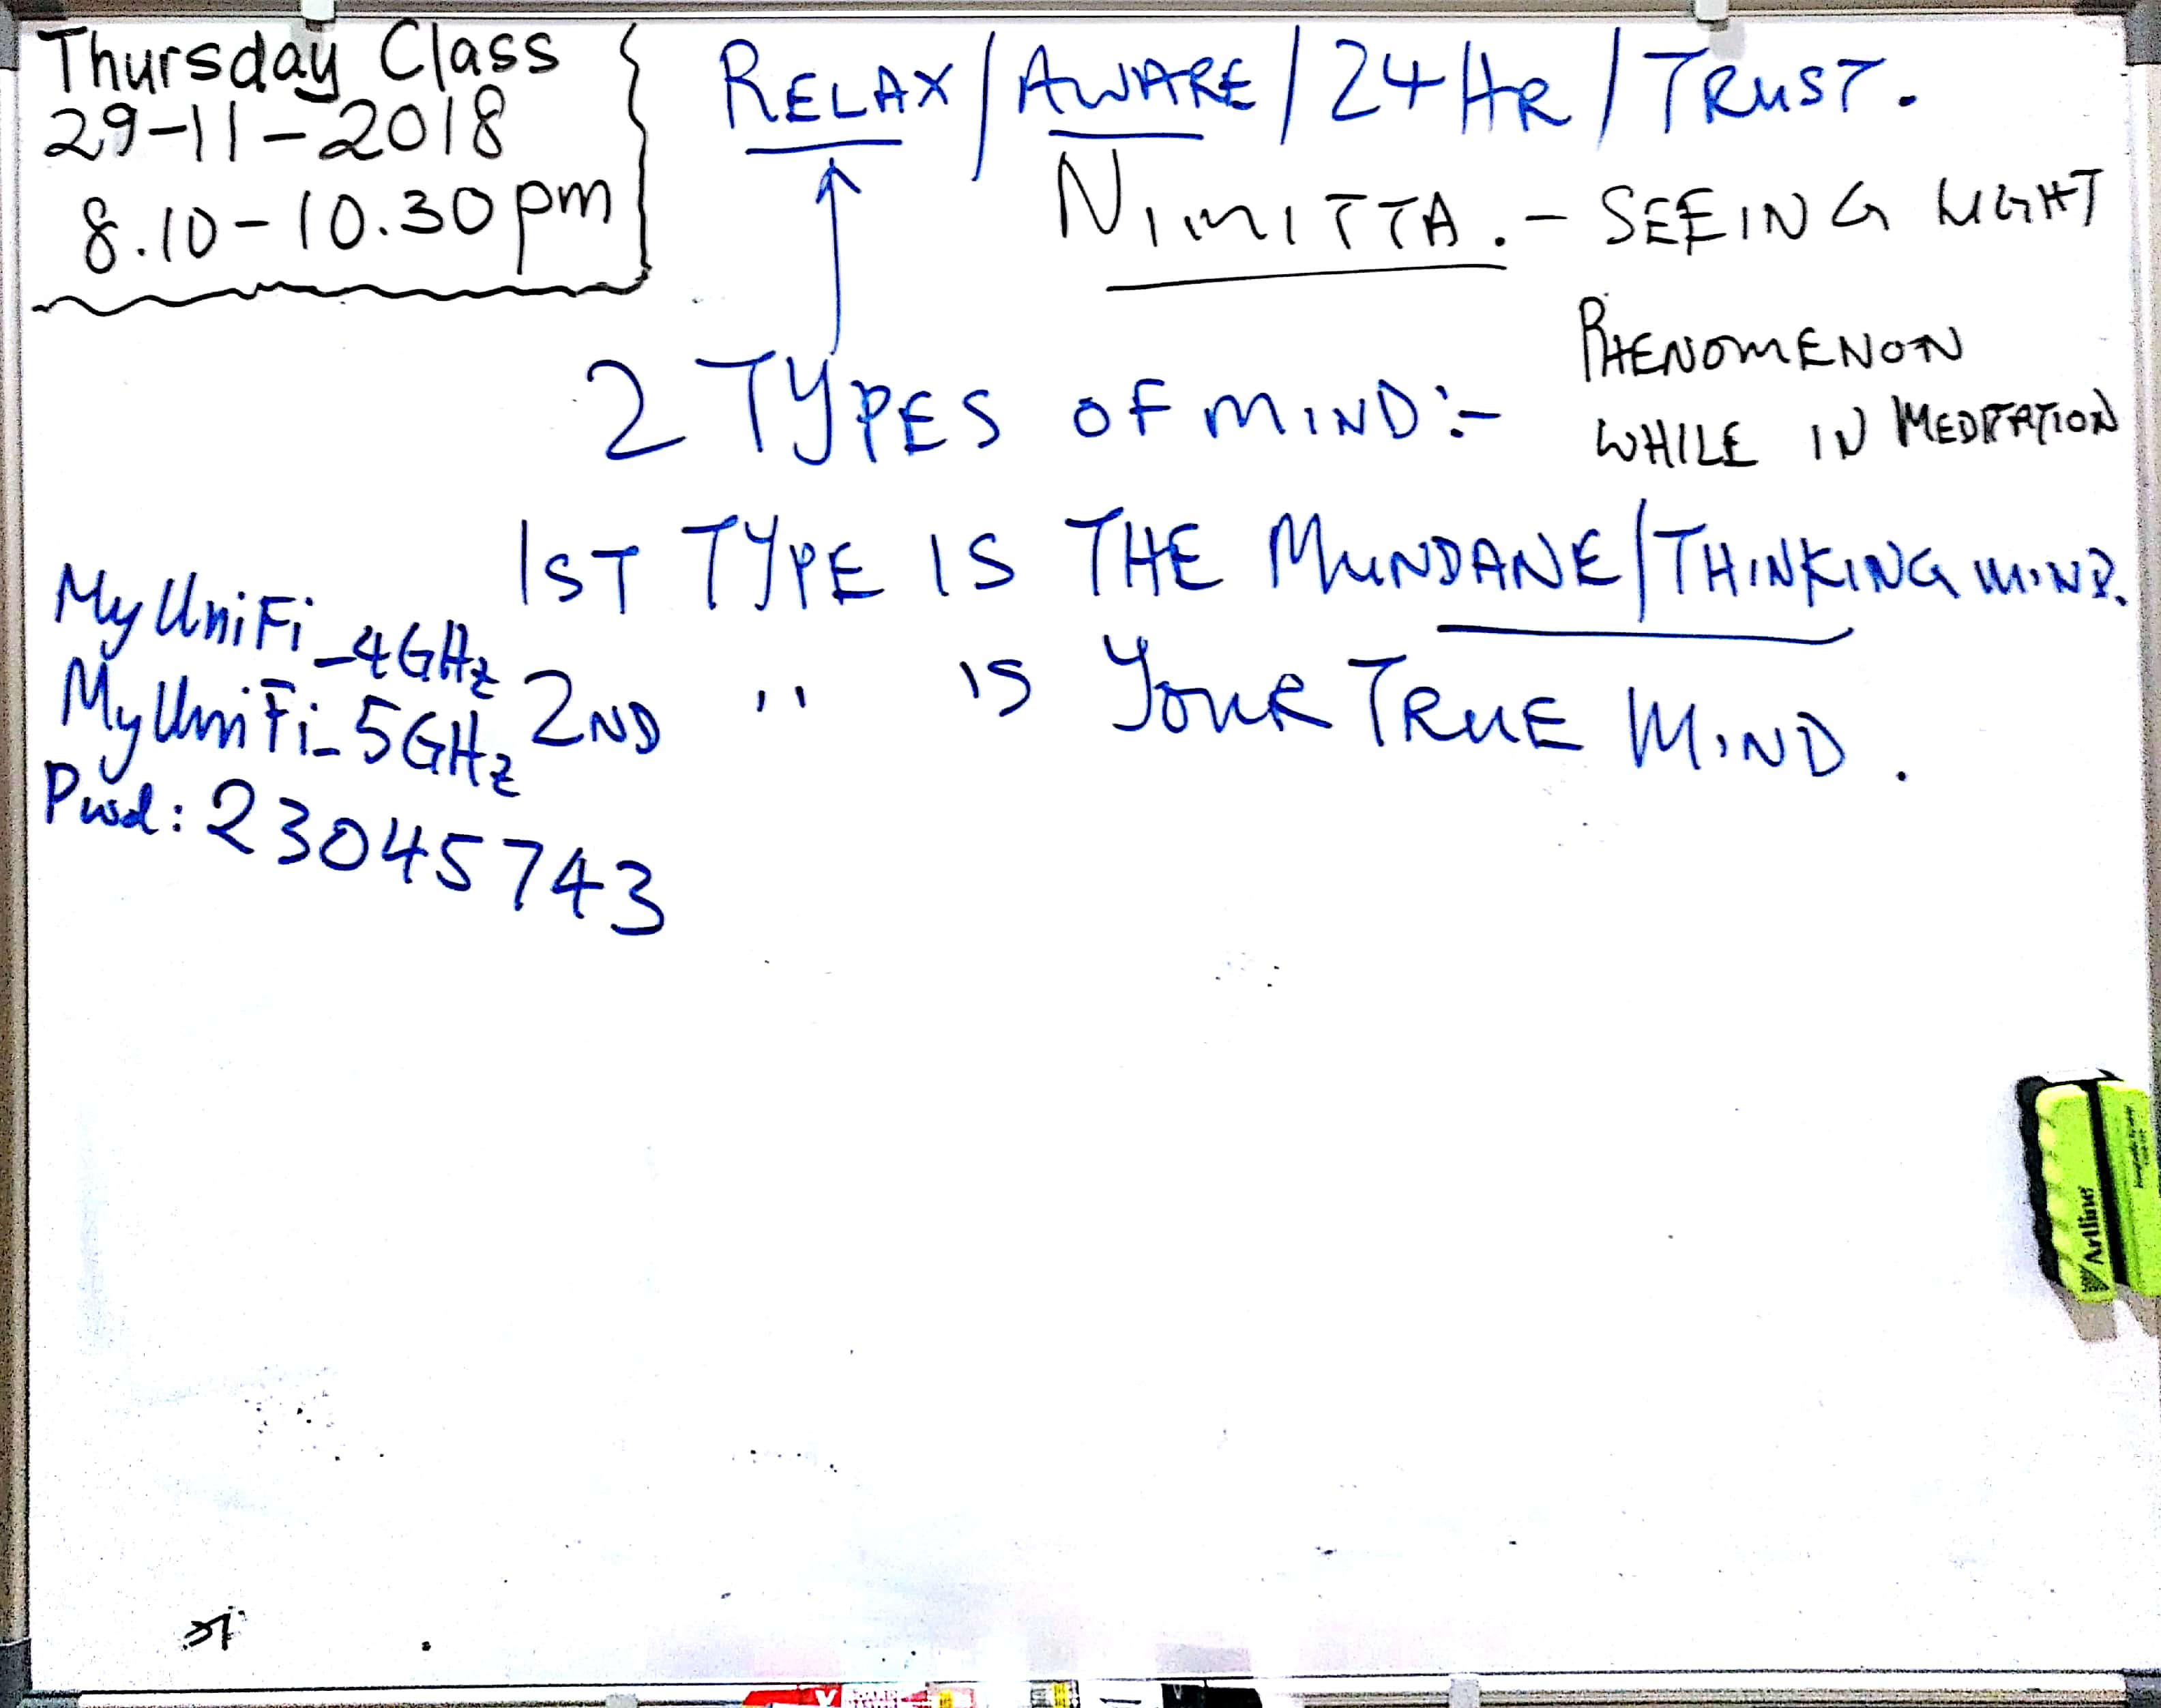 Thursday Class
29-11-2018
8.10-10.30pm
RELAX/AWARE/24HR/TRUST.
NIMITTA. - SEEING LIGHT
PHENOMENON
WHILE IN MEDITATION
2 TYPES OF MIND:-
1ST TYPE IS THE MUNDANE/THINKING MIND.
2ND " IS YOUR TRUE MIND.
MyUniFi_4GHz
MyUniFi_5GHz
Pwd: 23045743
Artline